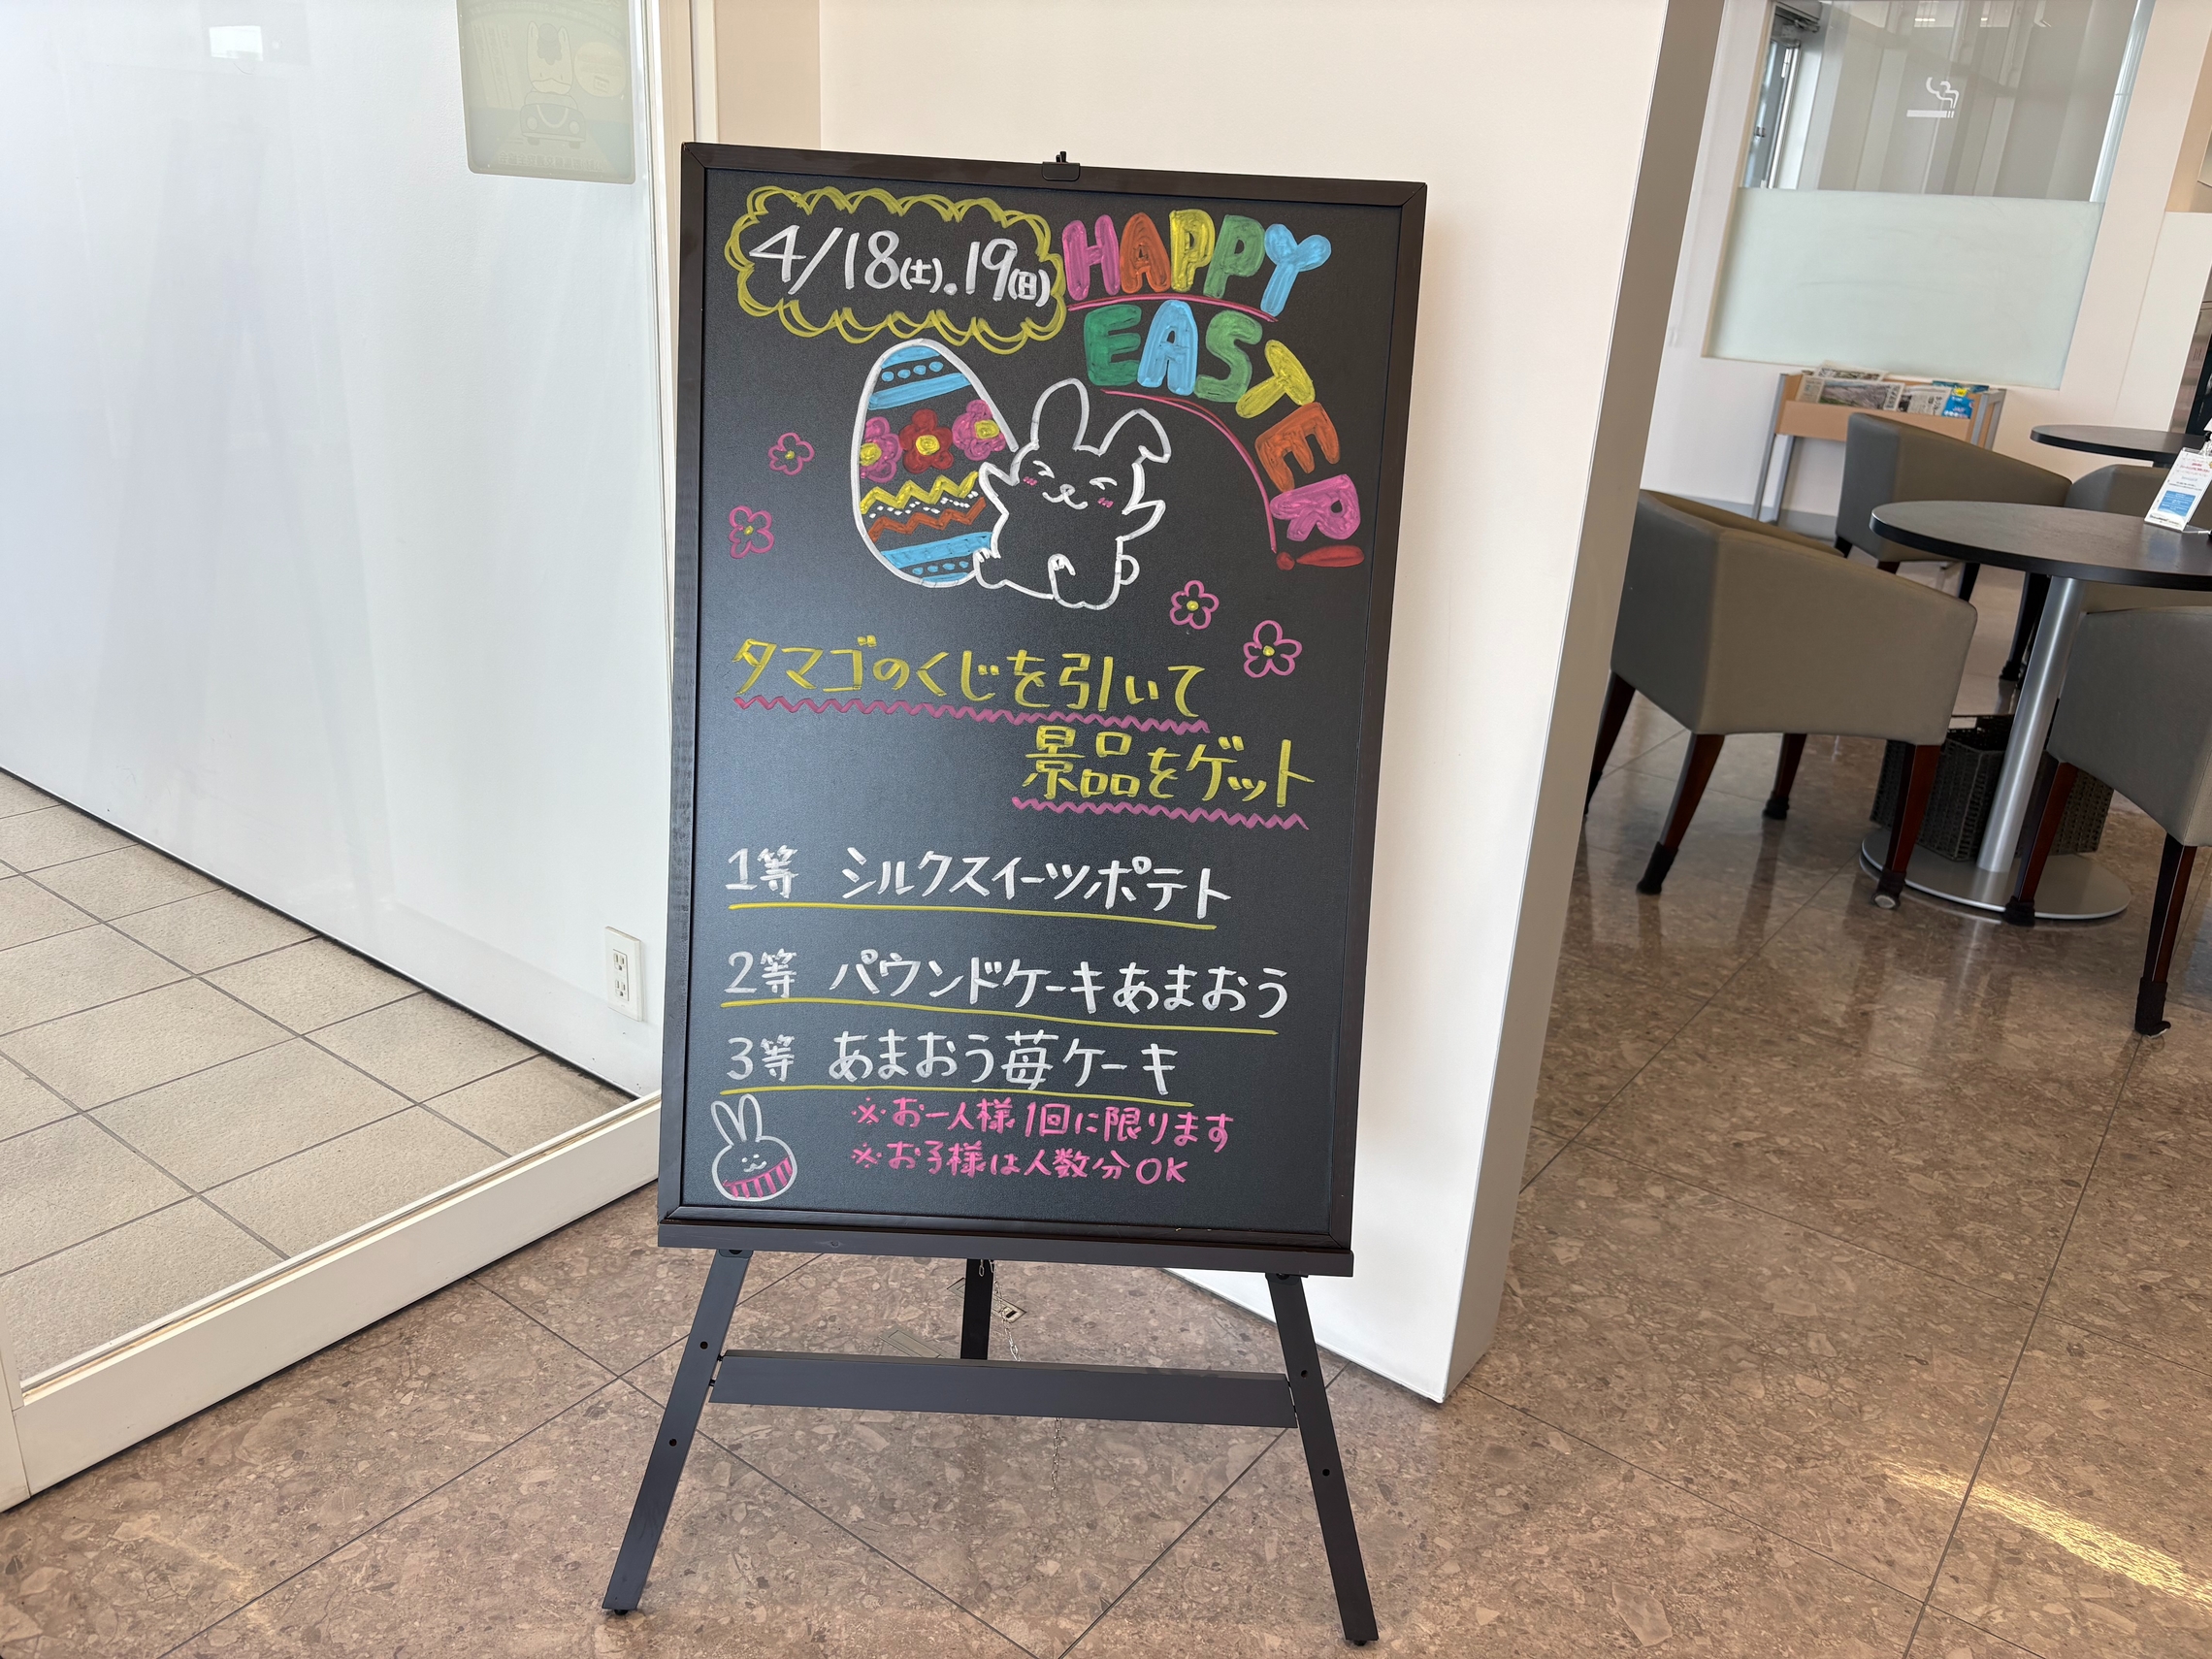 4/18(土).19(日)
HAPPY
EASTER!
タマゴのくじを引いて
景品をゲット
1等 シルクスイーツポテト
2等 パウンドケーキあまおう
3等 あまおう苺ケーキ
※お一人様1回に限ります
※お子様は人数分OK